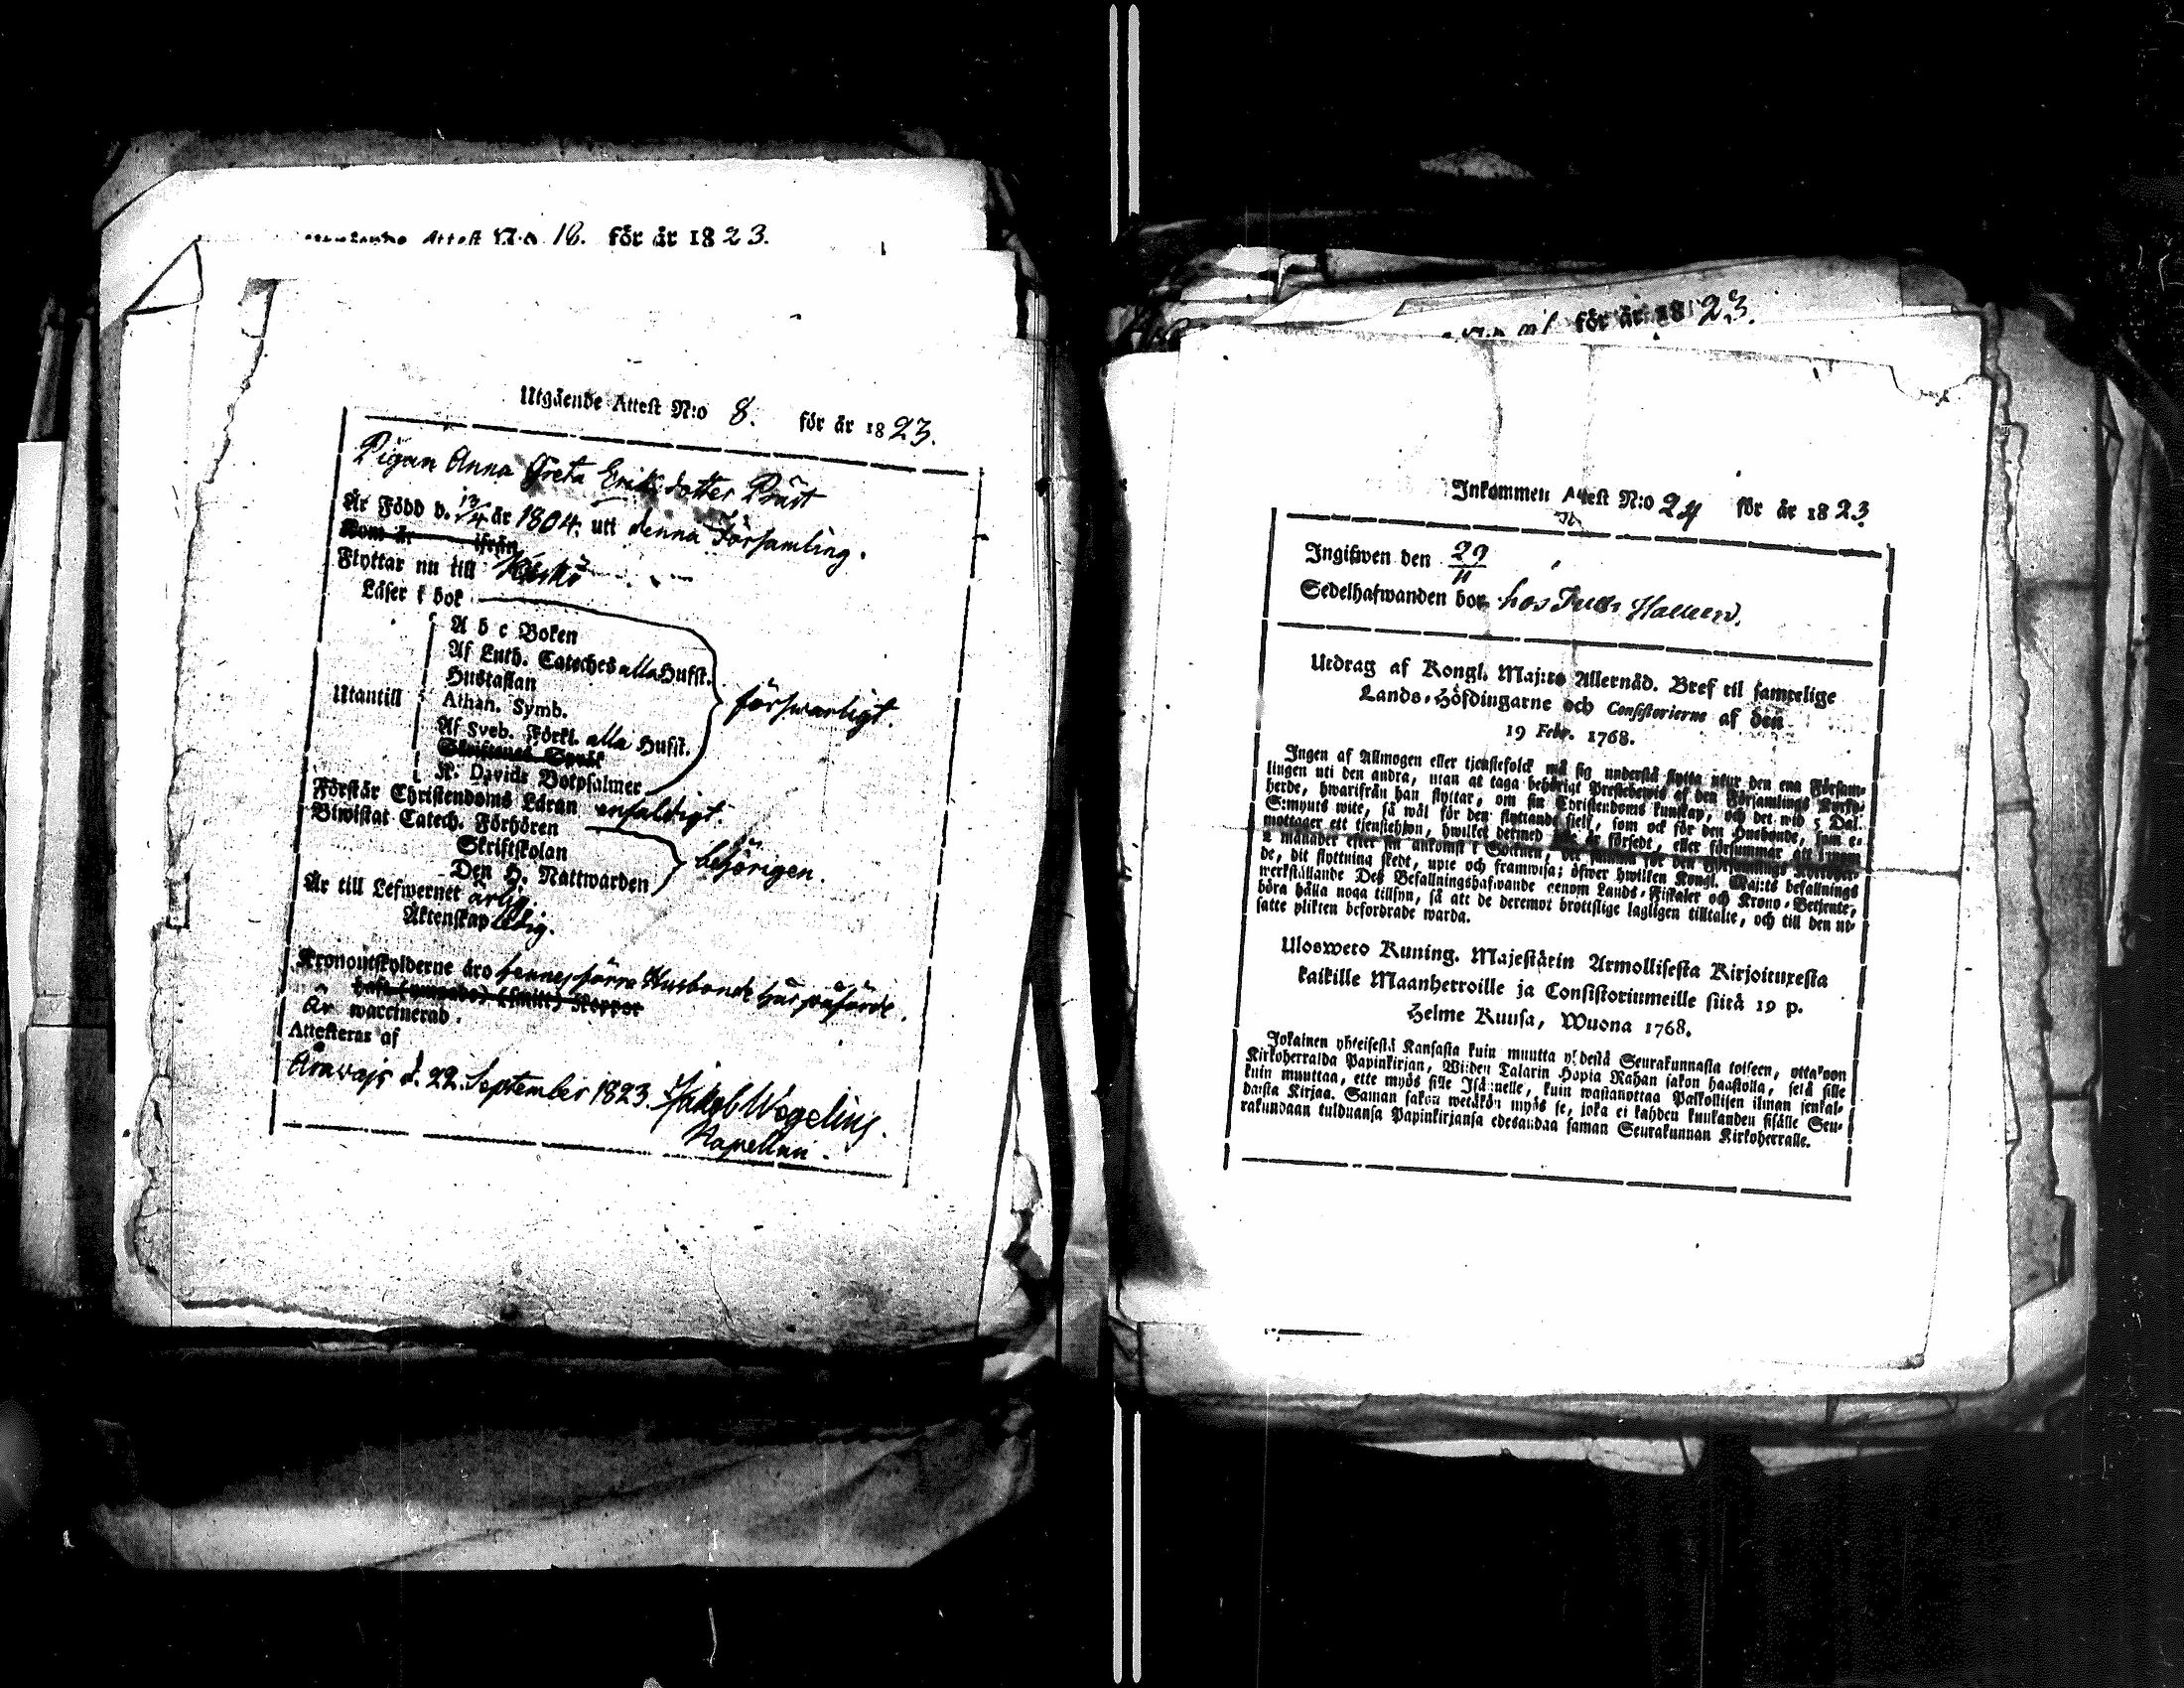 Attest N:o 18. för år 1823.
Utgående Attest N:o 8. för år 1823.
Pigan Anna Greta Eriksdotter Präst
Är Född d. 13/4 år 1804. uti denna Församling.
Kom år ifrån
Flyttar nu till
Läser i bok
A b c Boken
Af Luth. Cateches alla Hufst.
Hustaflan
Utantill
Athan. Symb.
Af Sveb. Förkl. alla Hufst.
Skriftenes Språk
K. Davids Botpsalmer
försvarligt.
Förstår Christendoms Läran enfaldigt.
Biwistat Catech. Förhören
Skriftskolan
Den H. Nattwarden
behörigen.
Är till Lefwernet ärlig.
Äktenskap ledig.
Kronoutskylderne äro hennes förra Husbonde här påförde.
Koppor
Är waccinerad.
Attesteras af
Arawajs d. 22. September 1823. Jakob Wegelius.
Kapellan.
för år 1823.
Inkommen Attest N:o 24 för år 1823.
Ingifwen den 29/11
Sedelhafwanden bor hos
Utdrag af Kongl. Maj:ts Allernåd. Bref til samtelige
Lands-Höfdingarne och Consistorierne af den
19 Febr. 1768.
Ingen af Allmogen eller tjenstefolck må sig understå flytta utur den ena Försam-
lingen uti den andra, utan at taga behörigt Prestebewis af den Församlings Kyrko-
herde, hwarifrån han flyttar, om sin Christendoms kunskap, och det wid 5 Dal.
S:mynts wite, så wäl för den flyttande sielf, som ock för den Husbonde, som e-
mottager ett tjenstehjon, hwilket dermed är försedt, eller försummar att inom
2 månader efter sin ankomst i Socknen, det samma för den Församlings Kyrkoher-
de, dit flyttning skedt, upte och framwisa; öfwer hwilken Kongl. Maj:ts befallnings
werkställande Des Befallningshafwande genom Lands-Fiskaler och Krono-Betjente,
böra hålla noga tillsyn, så att de deremot brottslige lagligen tilltalte, och till den ut-
satte plikten befordrade warda.
Ulosweto Kuning. Majestätin Armollisesta Kirjoituxesta
kaikille Maanherroille ja Consistoriumeille siitä 19 p.
Helme Kuusa, Wuona 1768.
Jokainen yhteisestä Kansasta kuin muutta yhdestä Seurakunnasta toiseen, ottakoon
Kirkoherralda Papinkirjan, Wiiden Talarin Hopia Rahan sakon haastolla, sekä sille
kuin muuttaa, ette myös sille Isännelle, kuin wastanottaa Palkollisen ilman senkal-
daista Kirjaa. Saman sakon wetäkön myös se, joka ei kahden kuukauden sisälle Seu-
rakundaan tulduansa Papinkirjansa edesandaa saman Seurakunnan Kirkoherralle.